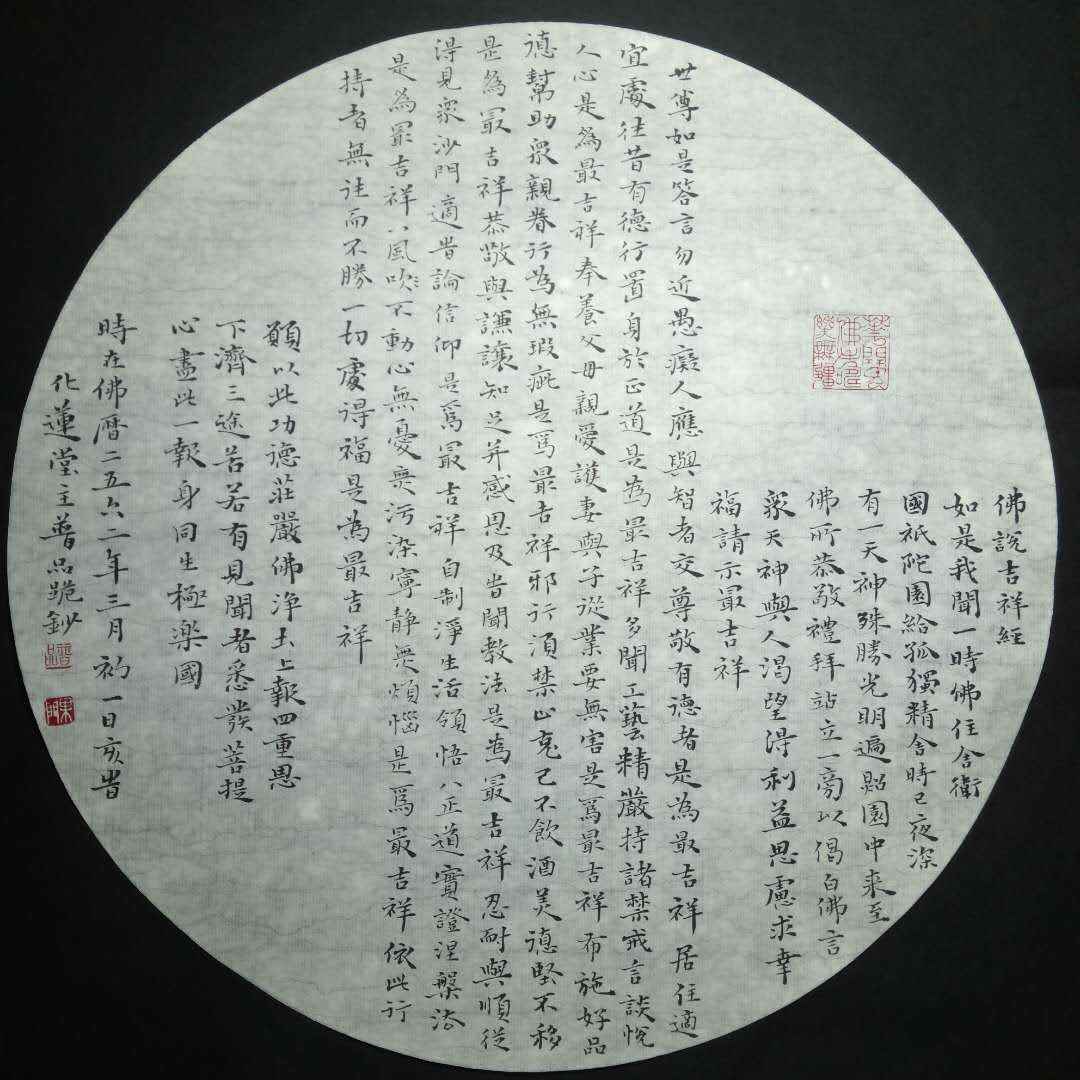 佛說吉祥經
如是我聞一時佛住舍衛
國祇陀園給孤獨精舍時已夜深
有一天神殊勝光明遍照園中来至
佛所恭敬禮拜站立一旁以偈白佛言
眾天神與人渴望得利益思慮求幸
福請示最吉祥
世尊如是答言勿近愚癡人應與智者交尊敬有德者是為最吉祥居住適
宜處往昔有德行置身於正道是為最吉祥多聞工藝精嚴持諸禁戒言談悅
人心是為最吉祥奉養父母親愛護妻與子從業要無害是為最吉祥布施好品
德幫助眾親眷行為無瑕疵是為最吉祥邪行須禁止克己不飲酒美德堅不移
是為最吉祥恭敬與謙讓知足并感恩及時聞教法是為最吉祥忍耐與順從
得見眾沙門適時論信仰是為最吉祥自制淨生活領悟八正道實證涅槃法
是為最吉祥八風吹不動心無憂無污染寧静無煩惱是為最吉祥依此行
持者無往而不勝一切處得福是為最吉祥
願以此功德莊嚴佛净土上報四重恩
下濟三途苦若有見聞者悉發菩提
心盡此一報身同生極楽國
時在佛曆二五六二年三月初一日亥時
化蓮堂主普品跪鈔
普品